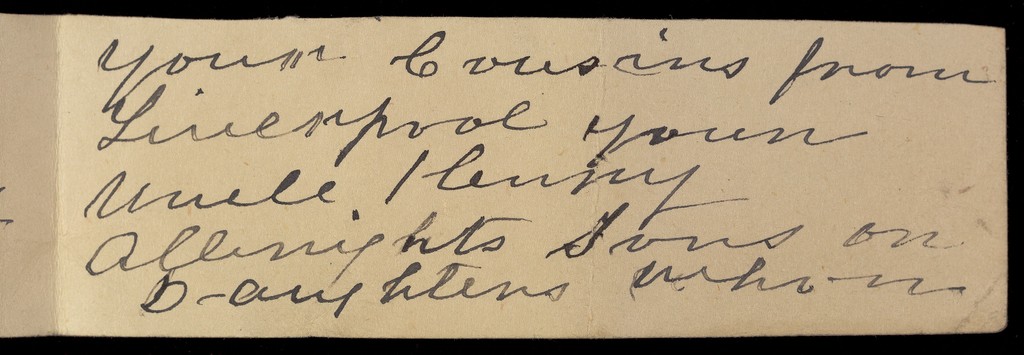 your Cousins from
Liverpool your
Uncle Henry
Allrights Sons or
Daughters whom